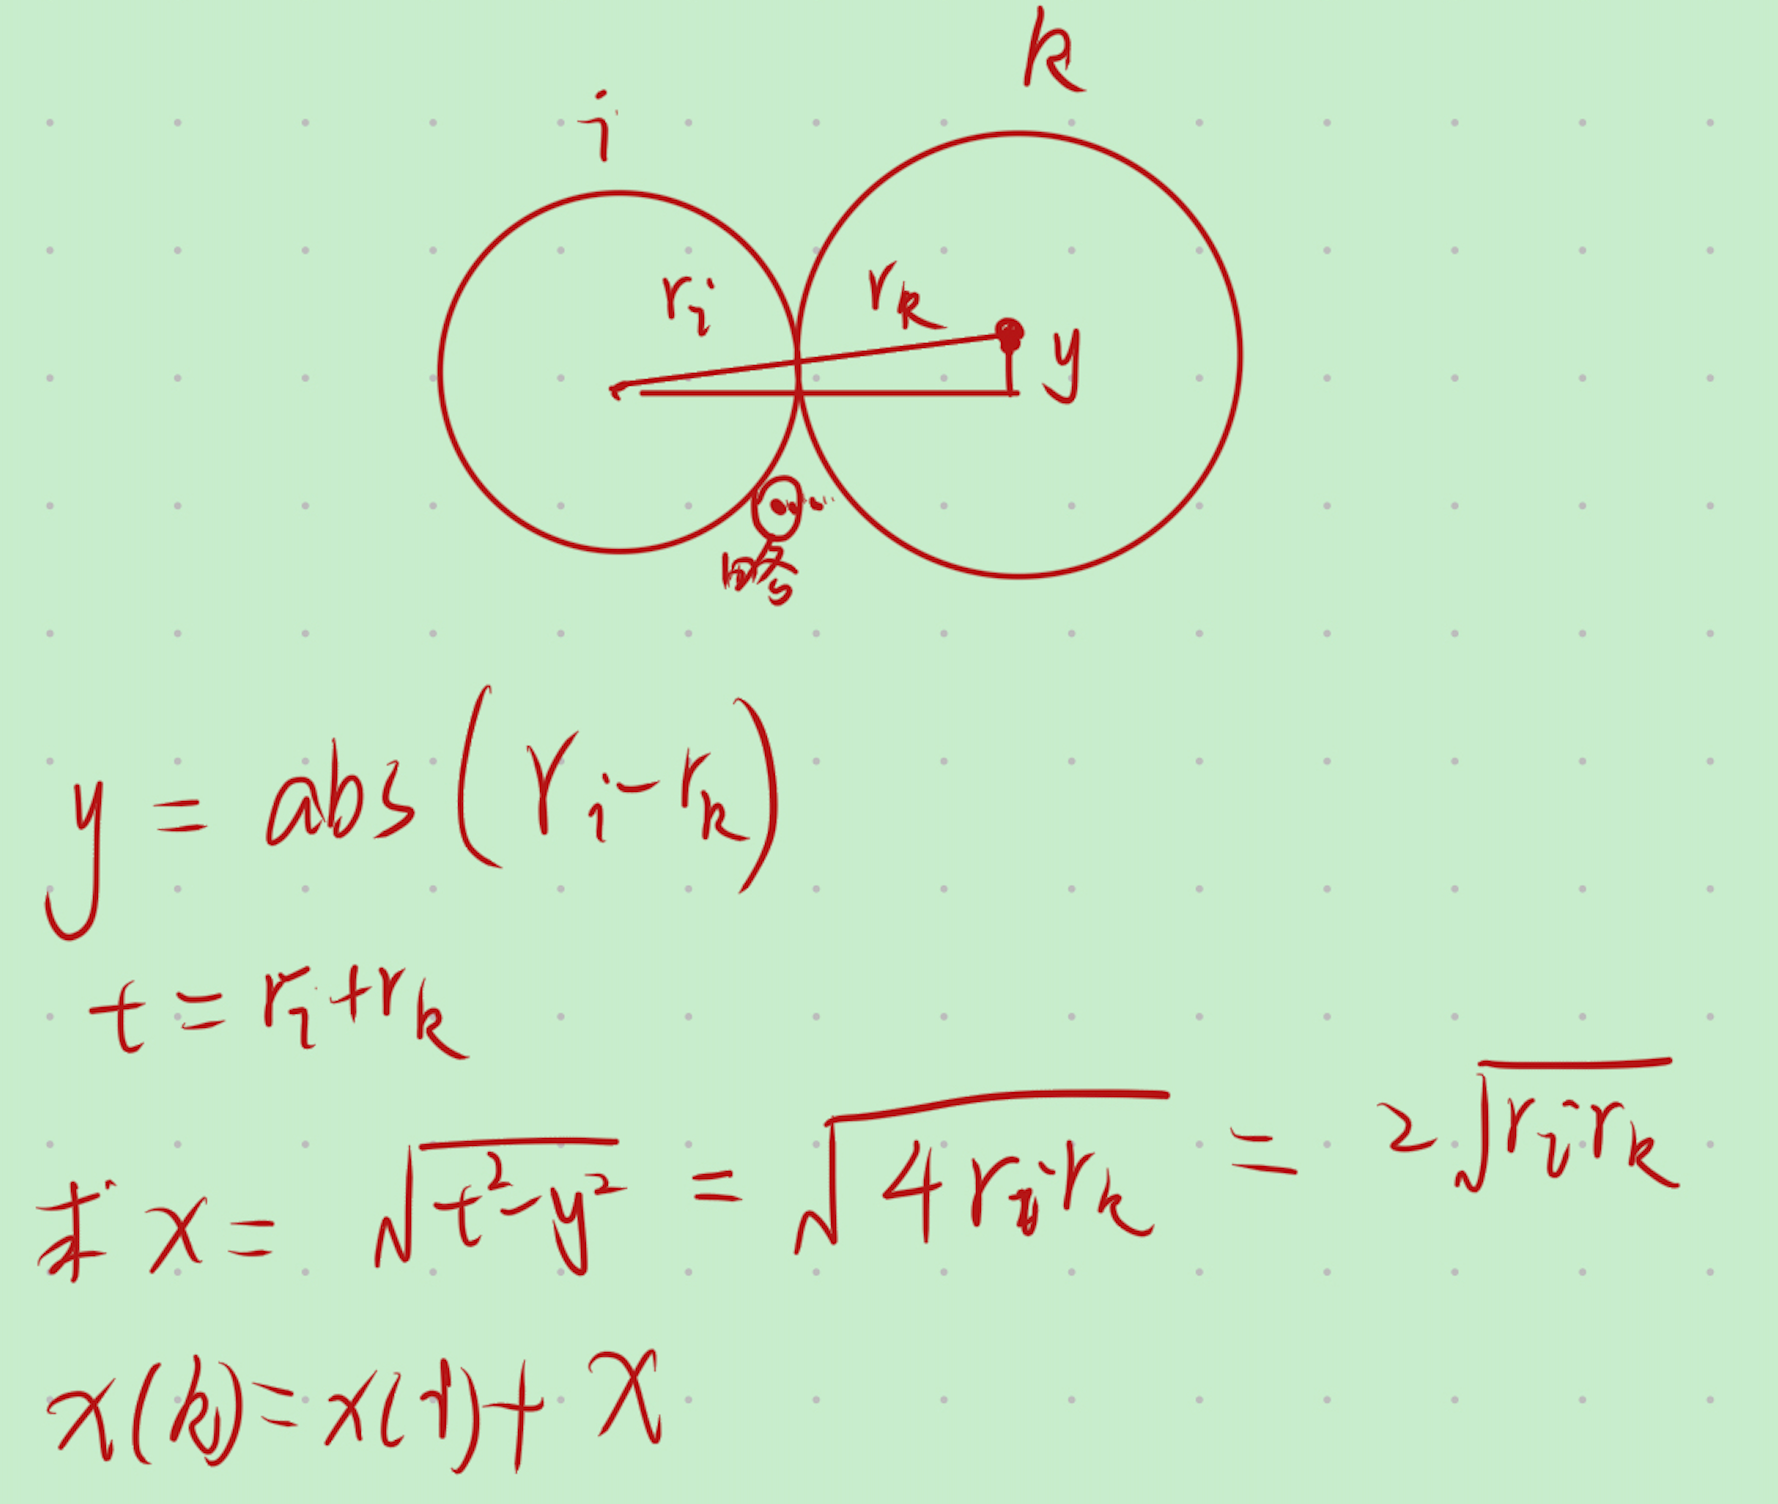 k
i
r_i
r_k
y
略
y = abs(r_i - r_k)
t = r_i + r_k
求 x = √(t²-y²) = √(4 r_i r_k) = 2√(r_i r_k)
x(k) = x(i) + x